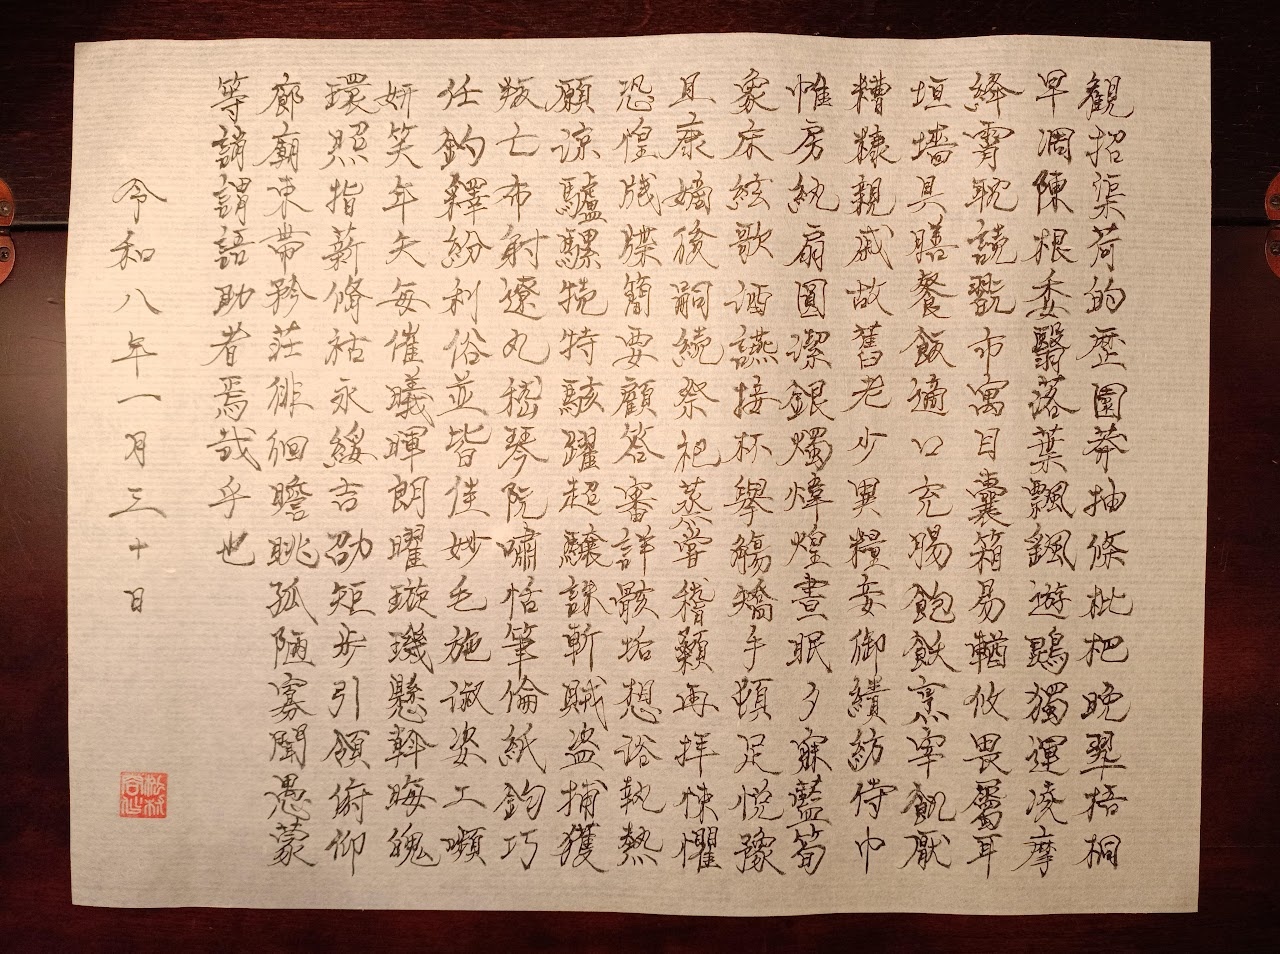 観招渠荷的歴園莽抽條枇杷晩翆梧桐
早凋陳根委翳落葉飄颻遊鵾獨運凌摩
絳霄耽読翫市寓目囊箱易輶攸畏屬耳
垣墻具膳餐飯適口充腸飽飫烹宰飢厭
糟糠親戚故舊老少異糧妾御績紡侍巾
帷房紈扇圓潔銀燭煒煌晝眠夕寐藍筍
象床絃歌酒讌接杯舉觴矯手頓足悅豫
且康嫡後嗣続祭祀蒸嘗稽顙再拜悚懼
恐惶牋牒簡要顧答審詳骸垢想浴執熱
願凉驢騾犢特駭躍超驤誅斬賊盜捕獲
叛亡布射遼丸嵇琴阮嘯恬筆倫紙鈞巧
任釣釋紛利俗並皆佳妙毛施淑姿工嚬
妍笑年矢每催曦暉朗曜璇璣懸斡晦魄
環照指薪脩祜永綏吉劭矩步引領俯仰
廊廟束帶矜莊徘徊瞻眺孤陋寡聞愚蒙
等誚謂語助者焉哉乎也
令和八年一月三十日